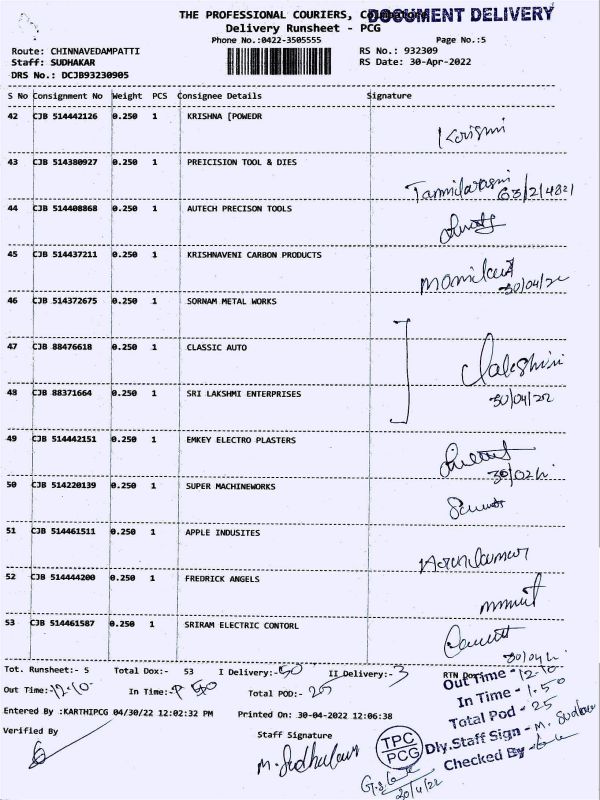 THE PROFESSIONAL COURIERS,
DOCUMENT DELIVERY
Delivery Runsheet - PCG
Phone No.:0422-3505555
Page No.:5
Route: CHINNAVEDAMPATTI
RS No.: 932309
Staff: SUDHAKAR
RS Date: 30-Apr-2022
DRS No.: DCJB93230905
S No Consignment No Weight PCS Consignee Details Signature
42 CJB 514442126 0.250 1 KRISHNA [POWEDR
43 CJB 514380927 0.250 1 PREICISION TOOL & DIES
44 CJB 514408868 0.250 1 AUTECH PRECISON TOOLS
45 CJB 514437211 0.250 1 KRISHNAVENI CARBON PRODUCTS
30/04/22
46 CJB 514372675 0.250 1 SORNAM METAL WORKS
47 CJB 88476618 0.250 1 CLASSIC AUTO
48 CJB 88371664 0.250 1 SRI LAKSHMI ENTERPRISES
30/04/22
49 CJB 514442151 0.250 1 EMKEY ELECTRO PLASTERS
50 CJB 514220139 0.250 1 SUPER MACHINEWORKS
51 CJB 514461511 0.250 1 APPLE INDUSITES
52 CJB 514444200 0.250 1 FREDRICK ANGELS
53 CJB 514461587 0.250 1 SRIRAM ELECTRIC CONTORL
Tot. Runsheet:- 5 Total Dox:- 53 I Delivery:-50 II Delivery:-3 RTN
Out Time:-12.10 In Time:- Total POD:- 25
Out Time - 12.10
In Time - 1.50
Total Pod - 25
Entered By :KARTHIPCG 04/30/22 12:02:32 PM Printed On: 30-04-2022 12:06:38
Verified By
Staff Signature
M. Sudhakar
TPC
PCG
Dly.Staff Sign - M. Sudhakar
Checked By -